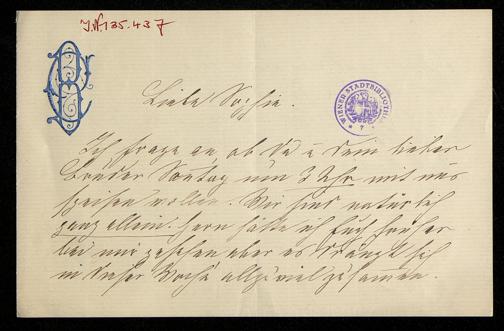 J.N. 135.437
WIENER STADTBIBLIOTHEK
Liebe Sophie.
Ich frage an, ob Du u Dein lieber
Bruder Sontag um 3 Uhr mit uns
speisen wollen. Wir sind natürlich
ganz allein. Gern hätte ich Euch früher
bei mir gesehen aber es drängt sich
in dieser Woche allzuviel zusammen.